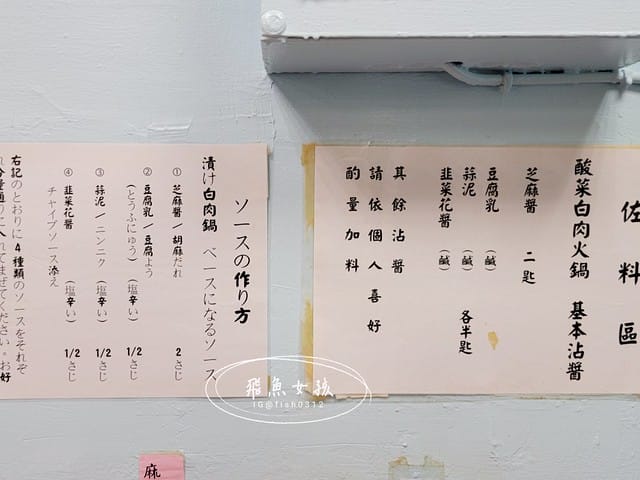 佐料區
酸菜白肉火鍋 基本沾醬
芝麻醬 二匙
豆腐乳 (鹹)
蒜泥 (鹹) 各半匙
韭菜花醬 (鹹)
其餘沾醬
請依個人喜好
酌量加料
ソースの作り方
漬け白肉鍋 ベースになるソース
① 芝麻醬/胡麻だれ 2さじ
② 豆腐乳/豆腐よう
(とうふにゅう) (塩辛い) 1/2さじ
③ 蒜泥/ニンニク (塩辛い) 1/2さじ
④ 韮菜花醬 (塩辛い) 1/2さじ
チャイブソース添え
右記のとおりに4種類のソースをそれぞ
れ分量通りに入れてまぜてください。お好
飛魚女孩
IG@fish0312
麻